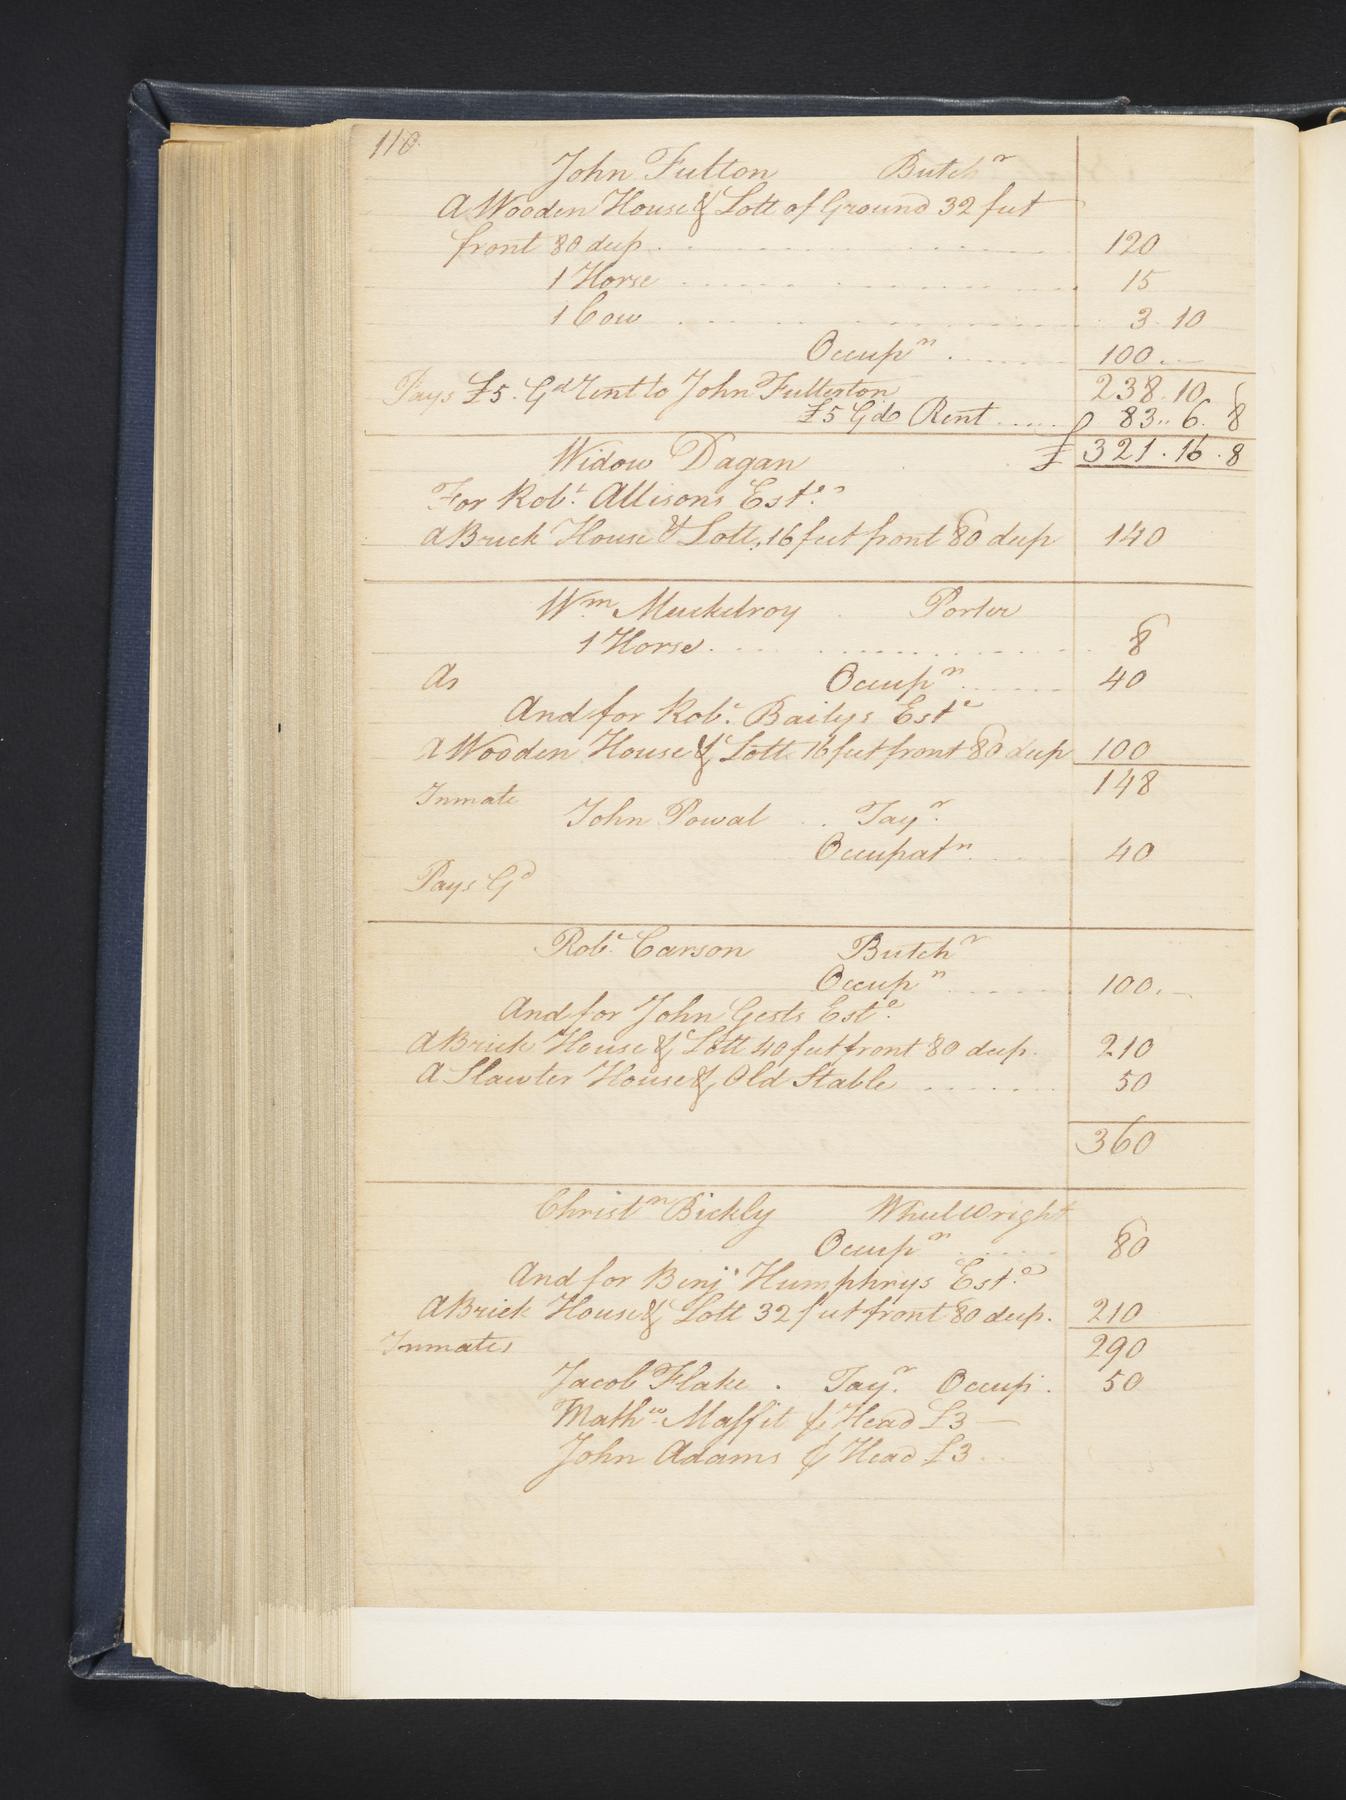 110.
John Fulton Butchr
A Wooden House & Lott of Ground 32 feet
front 80 deep 120
1 Horse 15
1 Cow 3.10
Occupn 100
Pays £5. Gd Rent to John Fullerton 238.10
£5 Gd Rent 83..6.8
Widow Dagan £ 321.16.8
For Robt. Allisons Este.
A Brick House & Lott, 16 feet front 80 deep 140
Wm. Muckelroy Porter
1 Horse 8
As Occupn 40
And for Robt. Bailys Este
A Wooden House & Lott 16 feet front 80 deep 100
148
Inmate
John Powal Tayr.
Occupatn. 40
Pays Gd
Robt. Carson Butchr
Occupn 100.
And for John Gests Este.
A Brick House & Lott 40 feet front 80 deep. 210
A Slawter House & Old Stable 50
360
Christn Bickly Wheelwright
Occupn 80
And for Benj. Humphrys Este.
A Brick House & Lott 32 feet front 80 deep. 210
Inmates 290
Jacob Flake. Tayr. Occup. 50
Mathw. Maffit ⅌ Head £3
John Adams ⅌ Head £3